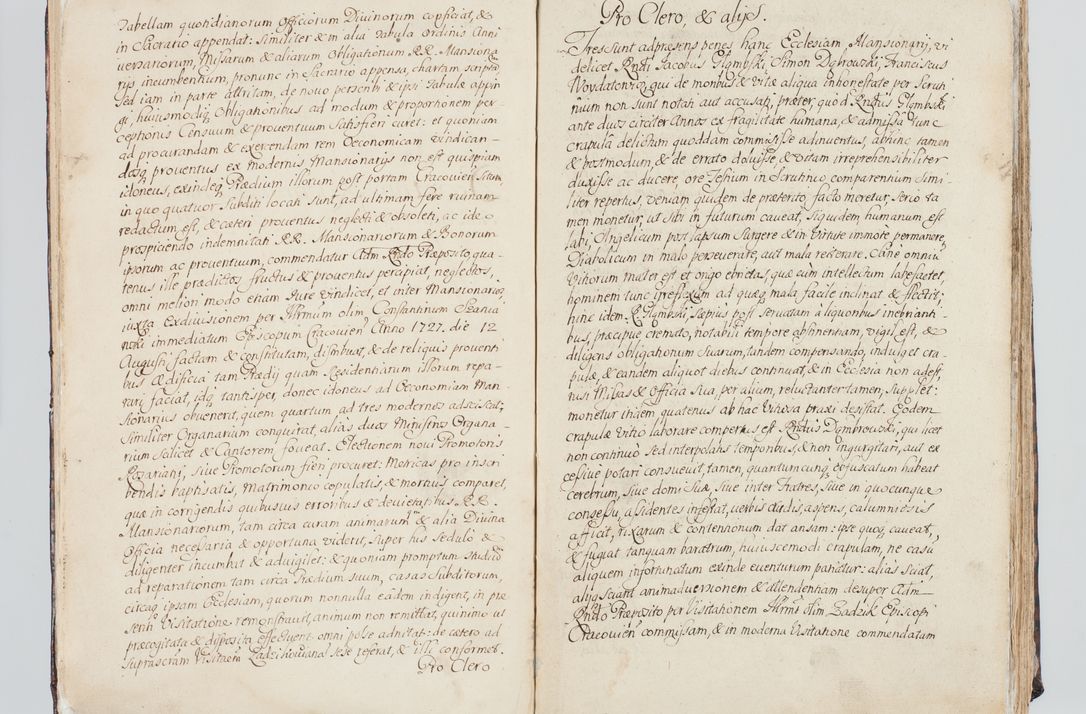 Tabellam quotidianorum Officiorum Divinorum conficiat, &
in Sacrario appendat: Similiter & in alia Tabula Ordinis Anni
versariorum, Missarum & aliarum Obligationum RR. Mansiona
rijs incumbentium, pronunc in Sacrario appensa, chartam scriptã
sed iam in parte attritam, de novo perscribi & ipsi Tabulæ appin
gi, huiusmodiq; Obligationibus ad modum & proportionem per
ceptionis Censuum & proventuum satisfieri curet: et quoniam
ad procurandam & exercendam rem Oeconomicam vindican-
dosq; proventus ex Modernis Mansionarijs non est quispiam
idoneus, exindeq; Prædium illorum post portam Cracovien: Situm,
in quo quatuor Subditi locati sunt, ad ultimam fere ruinam
redactum est, & cæteri proventus neglecti & obsoleti, ac ideo
prospiciendo indemnitati RR. Mansionariorum & Bonorum
ipsorum ac proventuum, commendatur Adm Rndo Præposito, qua-
tenus ille prædictos fructus & proventus percipiat, neglectos,
omni meliori modo etiam Jure vindicet, et inter Mansionarios,
iuxta Exdivisionem per Illrmum olim Constantinum Szania
wski immediatum Episcopum Cracovien Anno 1727. die 12
Augusti factam & constitutam, distribuat, & de reliquis proventi
bus Ædificia tam Prædij quam Residentiarum illorum repa-
rari faciat, idq; tantisper, donec idoneus ad Oeconomiam Man-
sionarius obvenerit, quem quartum ad tres modernos adsciscat;
Similiter Organarium conquirat, alias duos Ministros Organa-
rium Scilicet & Cantorem foveat. Electionem novi Promotoris
Rosariani, sive Promotorum fieri procuret: Metricas pro inscri
bendis baptisatis, Matrimonio copulatis, & mortuis comparet,
quæ in corrigendis quibusvis erroribus & devietatibus RR.
Mansionariorum, tam circa curam animarum & alia Divina
Officia necessaria & opportuna viderit, super his sedulo &
diligenter incumbat & advigilet: & quoniam promptum studiũ
ad reparationem tam circa Prædium suum, casas Subditorum,
circaq; ipsam Ecclesiam, quorum nonnulla eidem indigent, in præ
senti Visitatione remonstravit, animum non remittat, quinimo ut
præcogitata & disposita effectuent omni posse adnitat: de cætero ad
supra scram Visitaem Zadzisovianã sese referat, & illi conformet.
Pro Clero
Pro Clero, & alijs.
Tres sunt adpræsens penes hanc Ecclesiam, Mansionarij, vi
delicet Rndi Jacobus Głęmbski, Simon Dąbrowski, Franciscus
Woydatowicz, qui de moribus & vitæ aliqua inhonestate per Scruti
nium non sunt notati aut accusati, præter, quòd Rndus Głęmbski
ante duos circiter Annos ex fragilitate humana, & admissa tunc
crapula delictum quoddam commisisse adinventus, abhinc tamen
& postmodum & de errato doluisse & vitam irreprehensibiliter
duxisse ac ducere, ore Testium in Scrutinio comparentium simi-
liter repertus, veniam quidem de præterito facto meretur, Serio ta
men monetur, ut sibi in futurum caveat, siquidem humanum est
labi, Angelicum post lapsum surgere & in virtute immote permanere,
Diabolicum in malo perseverare, aut mala resterare. Cùm omniũ
vitiorum mater est et origo ebrietas, quæ cum intellectum labefactet,
hominem tunc irreflexum ad quæq; mala facile inclinat & flectit;
hinc idem R Głęmbski, sæpius post servatam a liquoribus inebrianti-
bus, præcipue cremato, notabili tempore abstinentiam, vigil est, &
diligens obligationum suarum, tandem compensando, indulget cra-
pulæ, & eandem aliquot diebus continuat, & in Ecclesia non adest,
nisi Missas & Officia sua, per alium, reluctanter tamen, supplet:
monetur insem quatenus ab hac vitiosa praxi desistat. Eodem
crapulæ vitio laborare compertus est Rndus Dąmbrowski; qui licet
non continuò sed interpolatis temporibus, & non ingurgitari, aut ex
cessive potari consuevit, tamen, quantumcunq; eo fuscatum habeat
cerebrum, sive domi suæ, sive inter Fratres, sive in quocunque
consessu, assidentes infestat, verbis tædis, aspens, calumniosis
afficit, rixarum & contentionum dat ansam: ipse quoq; caveat,
& fugiat tanquam baratrum, huiuscemodi crapulam, ne casũ
aliquem infortunatum exinde eventurum patiatur: alias sciat,
alijq; sciant animadversionem & attendentiam desuper Adm
Rndo Præposito per Visitationem Illrmi olim Zadzik Episcopi
Cracovien commissam, & in moderna Visitatione commendatum